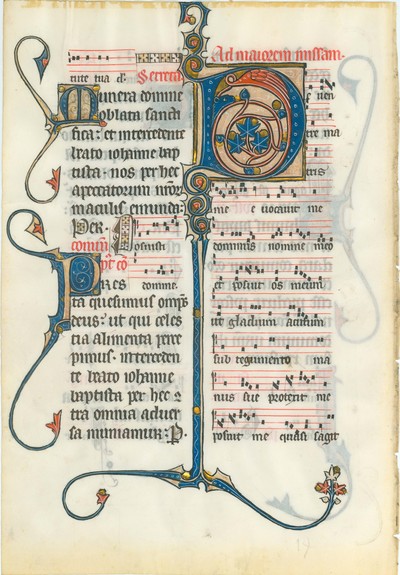 nite tua d̄. Secreta
Munera domine
oblata sancti
fica: et intercedente
beato iohanne bap
tista: nos per hec
a peccatorum nostrorum
maculis emunda.
Per. Posuisti
com̄.
pt̄ cō
Pres domine.
ta quesumus omps
deus: ut qui celes
tia alimenta perce
pimus. interceden
te beato iohanne
baptista per hec
tra omnia adver
sa muniamur: P.
Ad maiorem missam.
De ven
tre ma
tris
me e vocavit me
dominus nomine meo
et posuit os meum
ut gladium acutum
sub tegumento ma
nus sue protexit me
posuit me quasi sagit